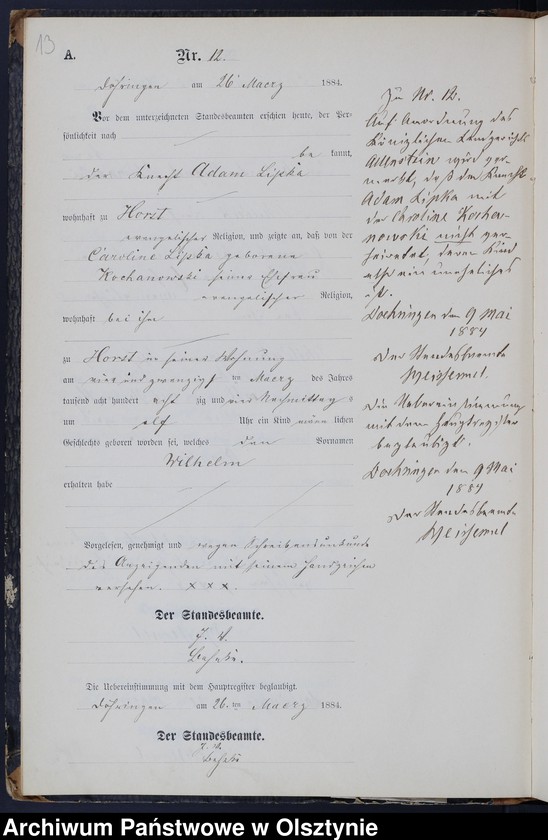 13
A.
Nr. 12.
Döhringen am 26 Maerz 1884.
Vor dem unterzeichneten Standesbeamten erschien heute, der Per-
sönlichkeit nach
be kannt,
der Knecht Adam Lipka
wohnhaft zu Horst
evangelischer Religion, und zeigte an, daß von der
Caroline Lipka geborene
Kochanowski seiner Ehefrau
evangelischer Religion,
wohnhaft bei ihm
zu Horst in seiner Wohnung
am vier und zwanzigsten Maerz des Jahres
tausend acht hundert acht zig und vier Nachmittags
um elf Uhr ein Kind männ lichen
Geschlechts geboren worden sei, welches den Vornamen
Wilhelm
erhalten habe
Vorgelesen, genehmigt und wegen Schreibensunkunde
des Anzeigenden mit seinem Handzeichen
versehen. x x x.
Der Standesbeamte.
J. V.
Die Uebereinstimmung mit dem Hauptregister beglaubigt.
Döhringen am 26. ten Maerz 1884.
Der Standesbeamte.
J. V.
Zu Nr. 12.
Auf Anordnung des
Königlichen Landgerichts
Allenstein wird ver-
merkt, daß der Knecht
Adam Lipka mit
der Caroline Kocha-
nowski nicht ver-
heiratet, deren Kind
also ein uneheliches
ist.
Doehringen den 9 Mai
1884
Der Standesbeamte
Die Uebereinstimmung
mit dem Hauptregister
beglaubigt.
Doehringen den 9 Mai
1884
Der Standesbeamte
Archiwum Państwowe w Olsztynie